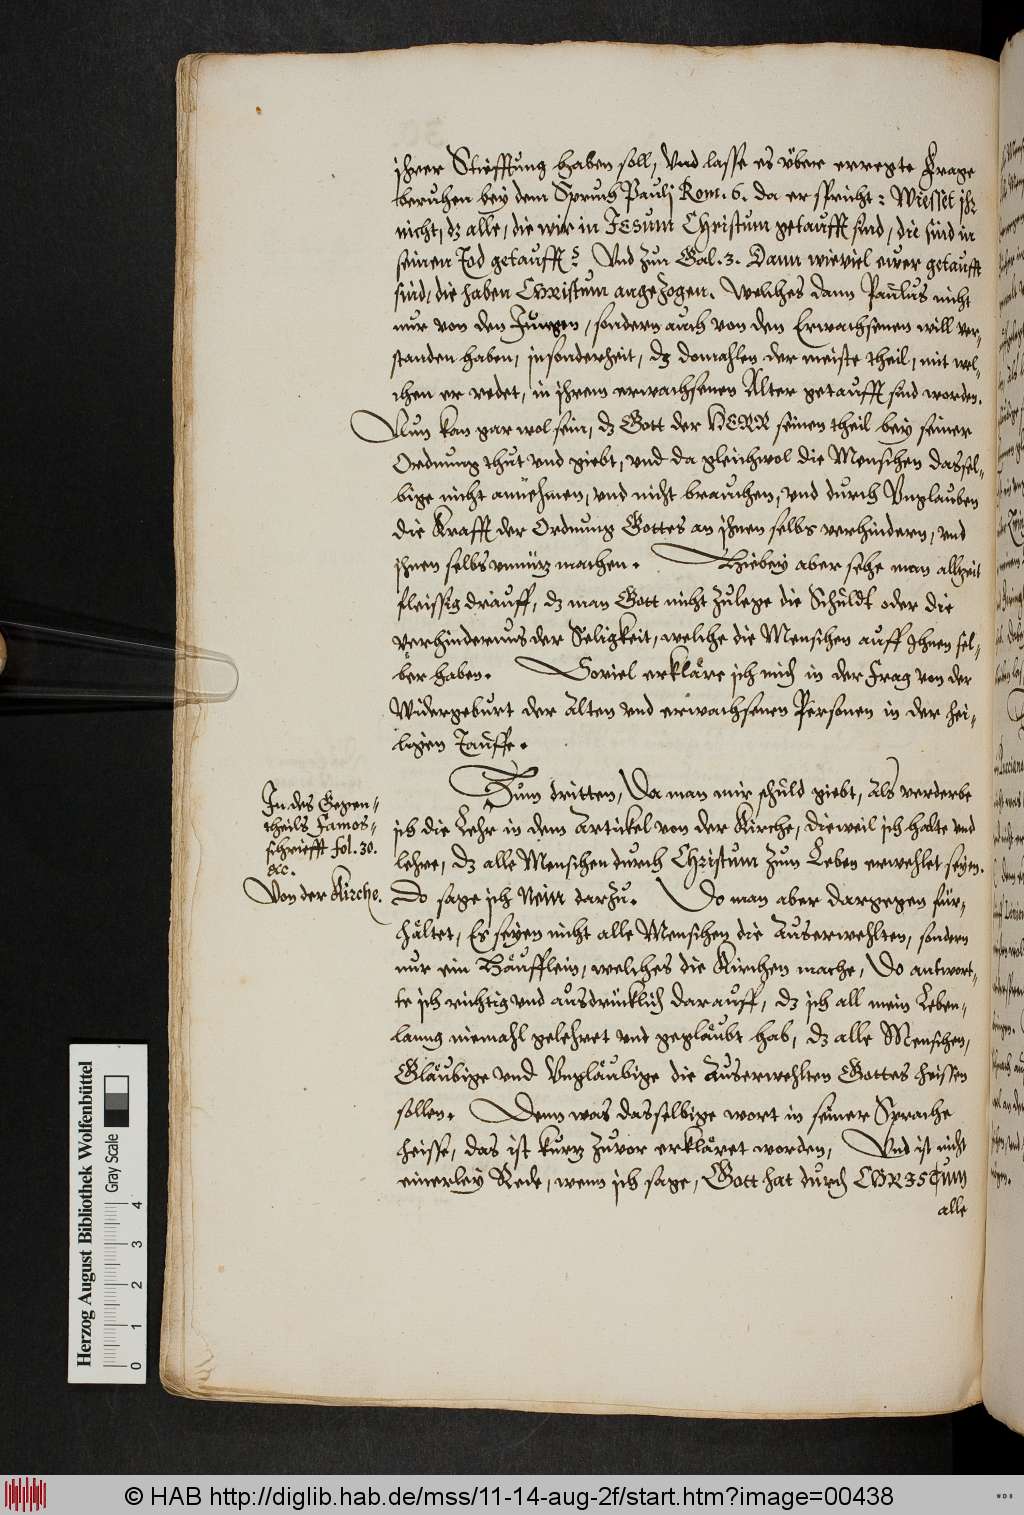 ihrer Stiefftung haben soll, Vnd lasse es vber erregte Frage
beruhen bey dem Spruch Pauli Rom. 6. da er spricht: Wiesset ihr
nicht, dz alle, die wir in JEsum Christum getaufft sind, die sind in
seinen Tod getaufft? Vnd zun Gal. 3. Dann wieviel ewer getaufft
sind, die haben CHRistum angezogen. Welches dann Paulus nicht
nur von den Jungen, sondern auch von den Erwachsenen will ver-
standen haben, insonderheit, dz domahlen der meiste theil, mit wel-
chen er redet, in ihrem erwachsenen Alter getaufft sind worden.
Nun kan gar wol sein, dz Gott der HERR seinen theil bey seiner
Ordnung thut vnd giebt, vnd da gleichwol die Menschen dassel-
bige nicht annehmen, vnd nicht brauchen, vnd durch Vnglauben
die Krafft der Ordnung Gottes an ihnen selbs verhindern, vnd
ihnen selbs vnnütz machen. Hiebey aber sehe man allzeit
fleissig drauff, dz man Gott nicht zulege die Schuldt oder die
verhindernus der Seligkeit, welche die Menschen auff Ihnen sel-
ber haben. Soviel erkläre ich mich in der Frag von der
Widergeburt der Alten vnd erwachsenen Personen in der hei-
ligen Tauffe.
In des Gegen-
theils Famos-
schriefft fol. 30.
etc.
Von der Kirche.
Zum dritten, Da man mir schuld giebt, Als verderbe
ich die Lehr in dem Artickel von der Kirche, dieweil ich halte vnd
lehre, dz alle Menschen durch Christum zum Leben erwehlet seyen.
Do sage ich Nein darzu. Do man aber dargegen für-
hältet, Es seyen nicht alle Menschen die Auserwehlten, sondern
nur ein Häufflein, welches die Kirchen mache, Do antwort-
te ich richtig vnd ausdrücklich darauff, dz ich all mein Leben-
lanng niemahl gelehret vnd geglaubt hab, dz alle Menschen,
Gläubige vnd Vngläubige die Auserwehlten Gottes heissen
sollen. Denn was dasselbige wort in seiner Sprache
heisse, das ist kurz zuvor erkläret worden, Vnd ist nicht
einerley Rede, wenn ich sage, Gott hat durch CHRISTum
alle
Herzog August Bibliothek Wolfenbüttel
Gray Scale
0 1 2 3 4
© HAB http://diglib.hab.de/mss/11-14-aug-2f/start.htm?image=00438